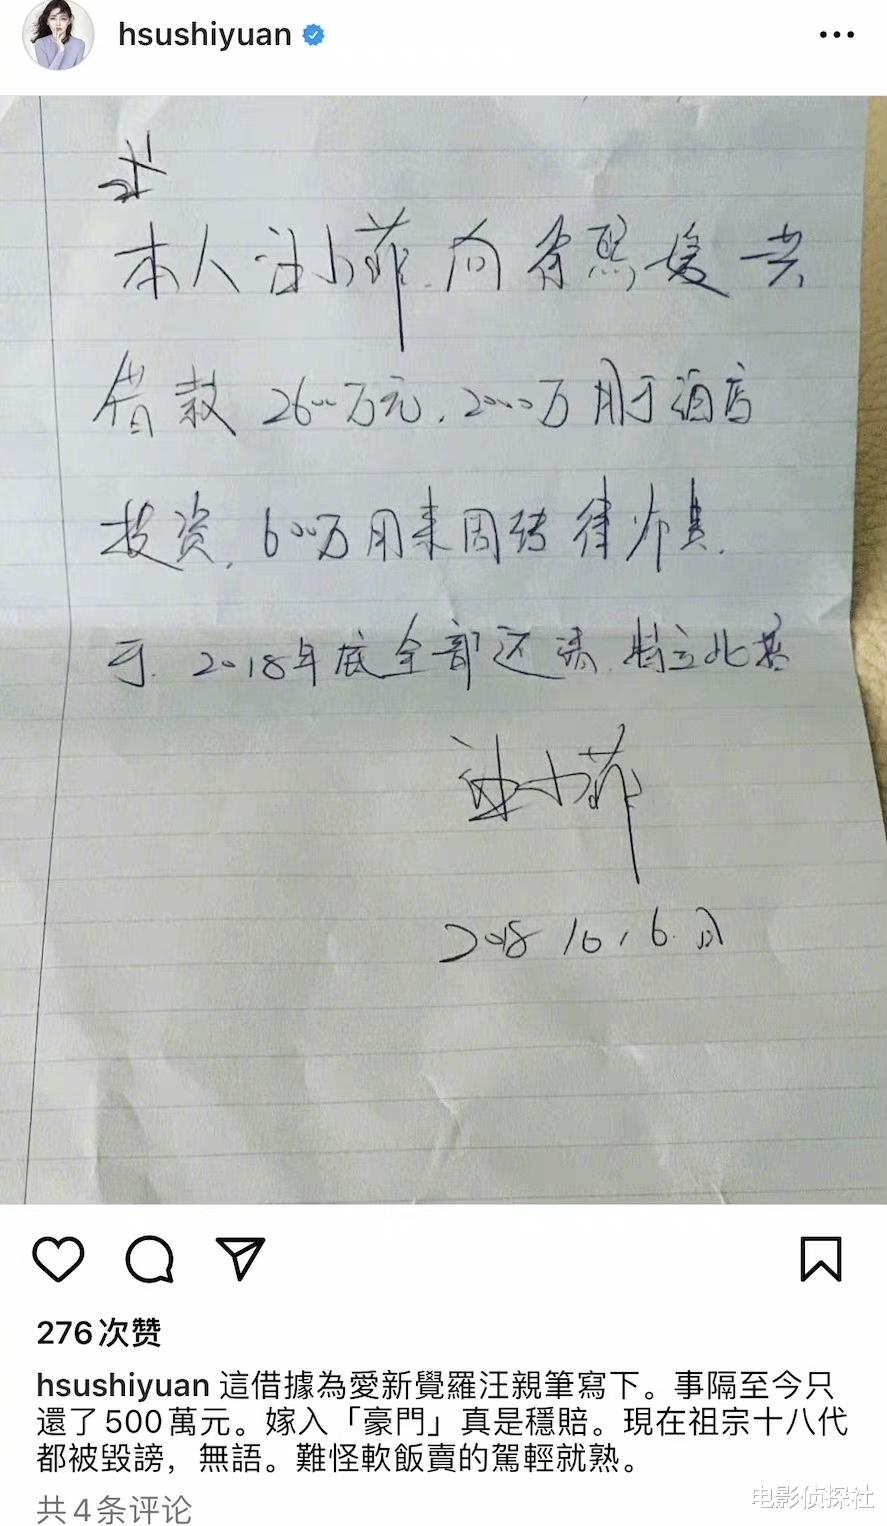 hsushiyuan
本人汪小菲.向徐熙媛共
借款2600万元,2000万用于酒店
投资,600万用来周转律师费.
于.2018年底全部还清.特立此据
汪小菲
276次赞
hsushiyuan 這借據為愛新覺羅汪親筆寫下。事隔至今只
還了500萬元。嫁入「豪門」真是穩賠。現在祖宗十八代
都被毀謗，無語。難怪軟飯賣的駕輕就熟。
共4条评论
电影侦探社